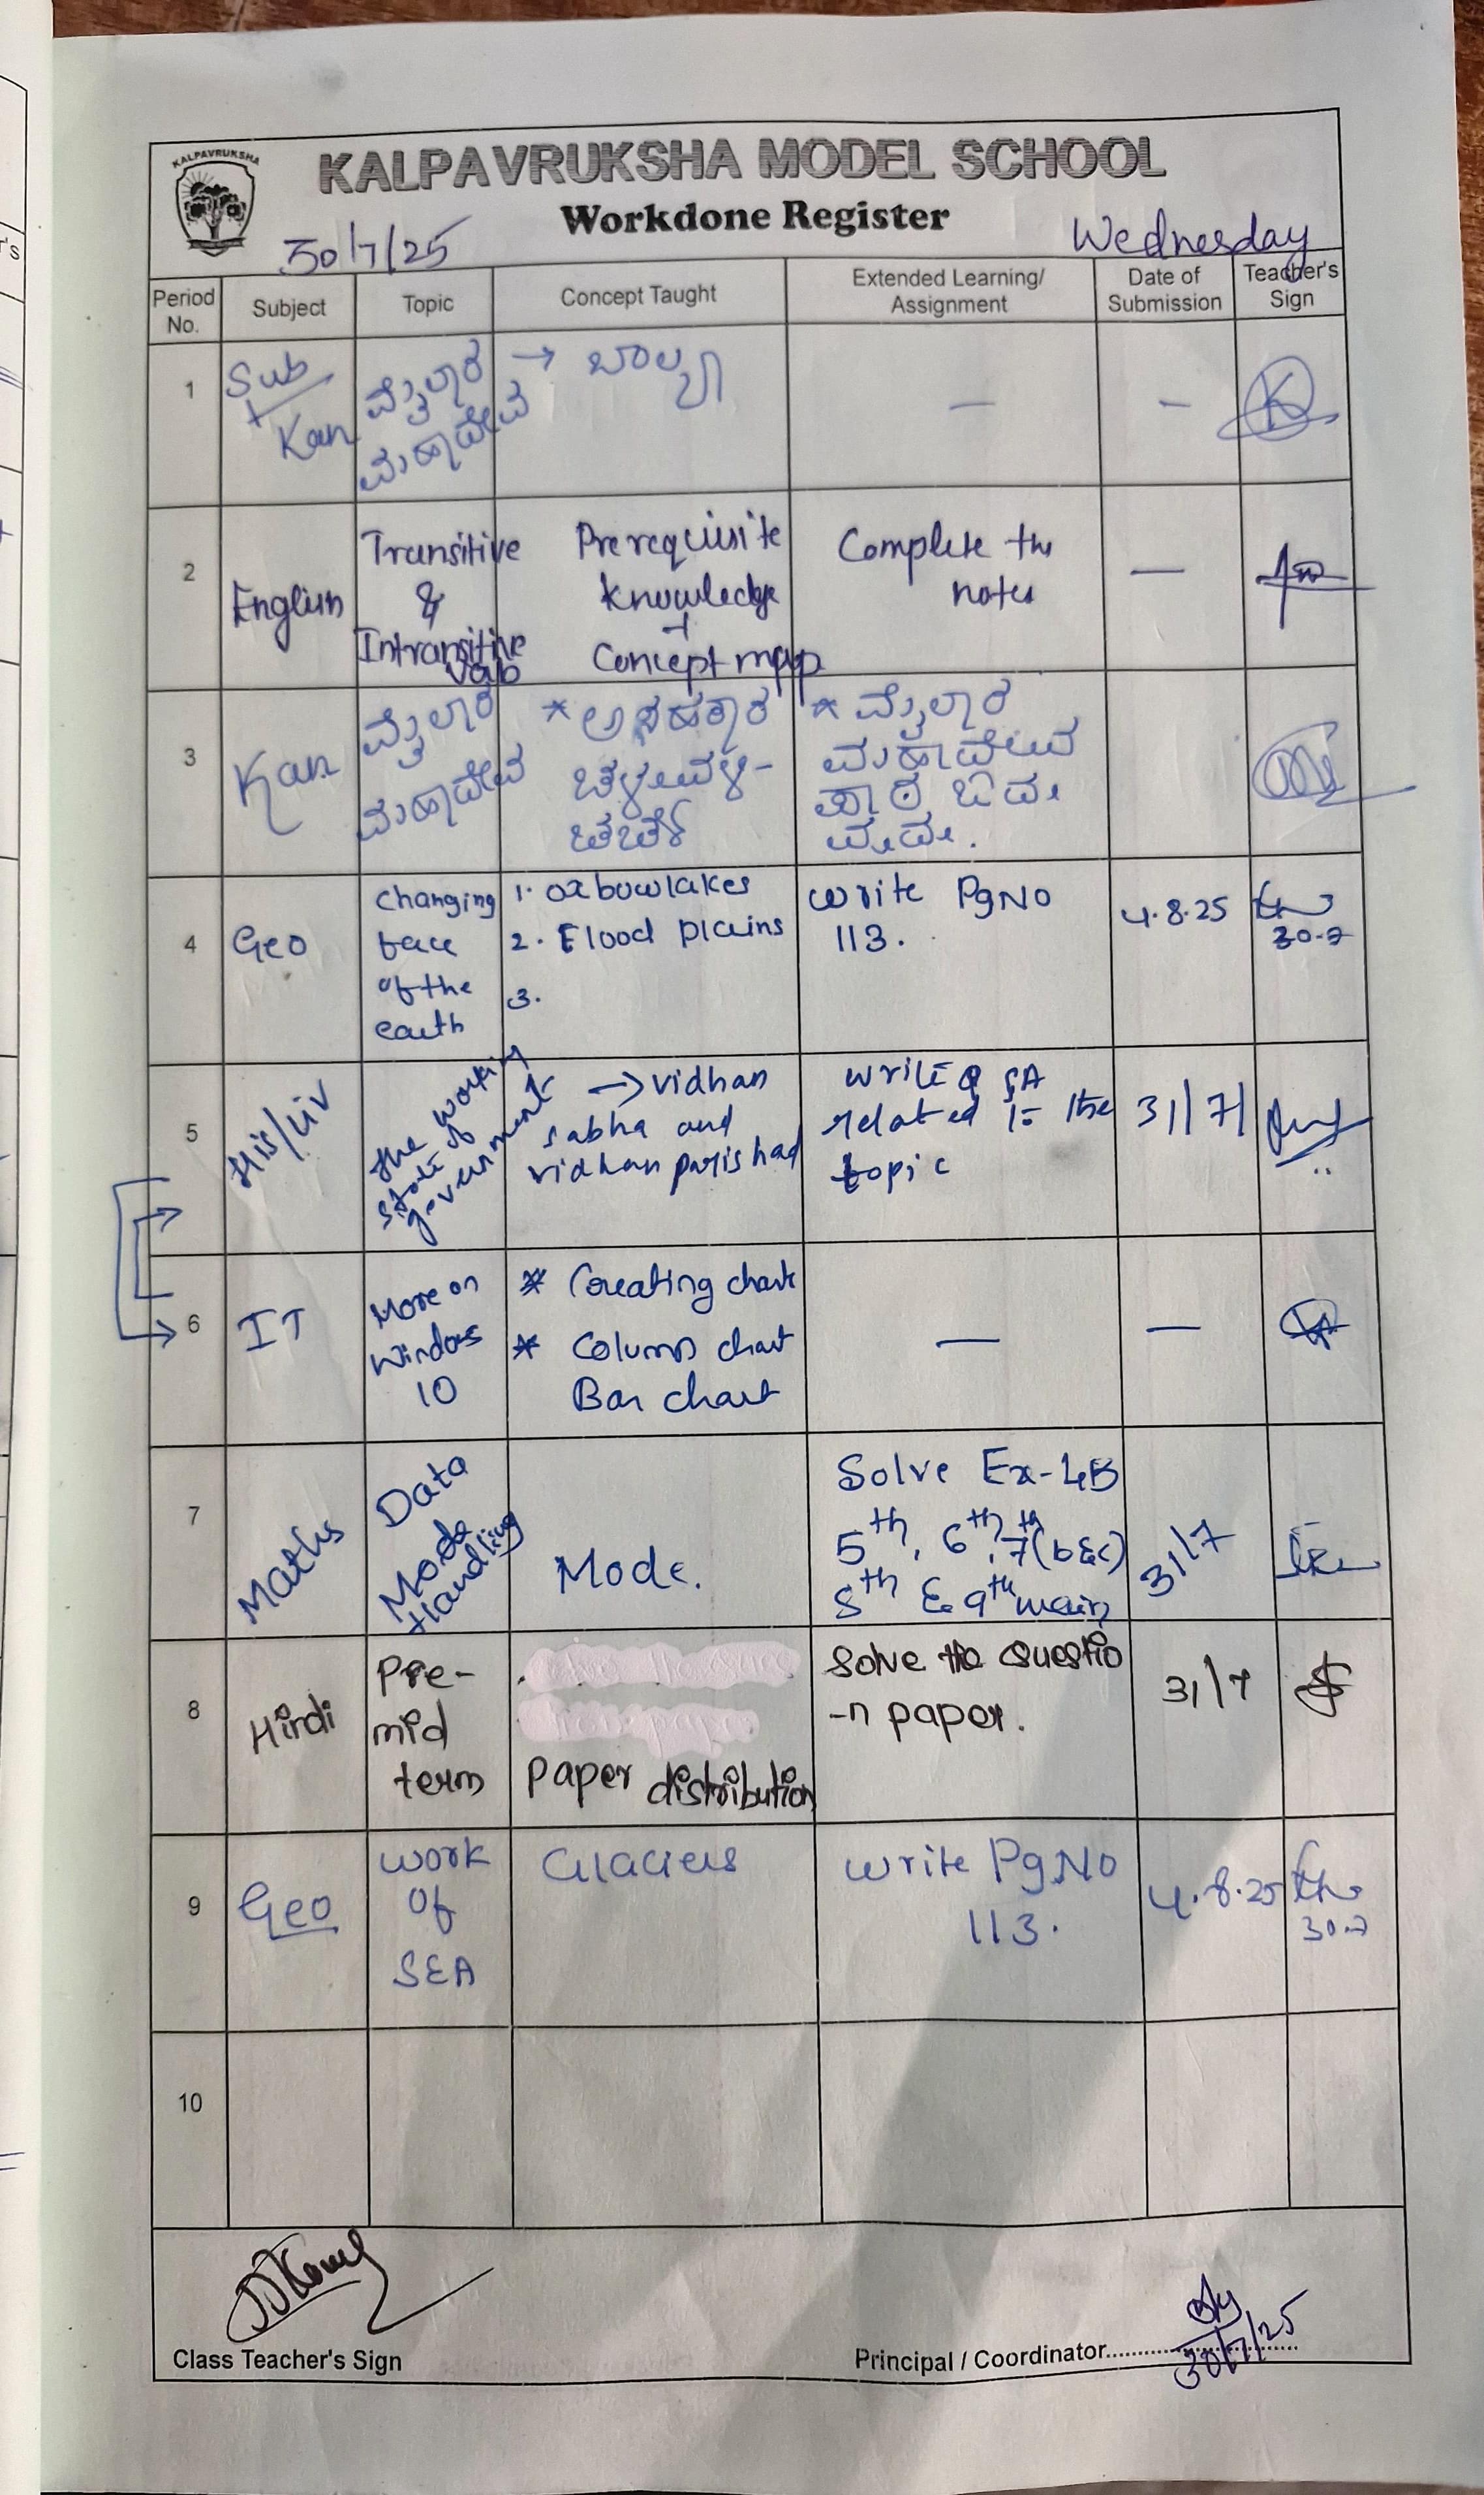 KALPAVRUKSHA
KALPAVRUKSHA MODEL SCHOOL
Workdone Register
30/7/25
Wednesday
Period No.
Subject
Topic
Concept Taught
Extended Learning/
Assignment
Date of
Submission
Teacher's
Sign
1
Sub
+
Kan
ಮೈಲಾರ
ಮಹಾದೇವ
→ ಬಾಲ್ಯ
—
—
2
English
Transitive
&
Intransitive
Prerequisite
knowledge
+
Concept map
Complete the
notes
—
3
Kan
ಮೈಲಾರ
ಮಹಾದೇವ
* ಅಸಹಕಾರ
ಚಳುವಳಿ-
ಚರ್ಚೆ
* ಮೈಲಾರ
ಮಹಾದೇವ
ಪಾಠ
4
Geo
Changing
face
of the
earth
1. oxbowlakes
2. Flood plains
3.
write PgNo
113.
4.8.25
30-7
5
His/Civ
the working
state of
government
→ vidhan
sabha and
vidhan parishad
write Q &A
related to the
topic
31/7/
6
IT
More on
Windows
10
* Creating chart
* Column chart
Bar chart
—
—
7
Maths
Data
Mode
Handling
Mode.
Solve Ex-4B
5th, 6th, 7th (b&c)
8th & 9th main
31/7
8
Hindi
Pre-
mid
term
Paper distribution
Solve the questio
-n paper.
31/7
9
Geo
work
of
SEA
Glaciers
write PgNo
113.
4.8.25
30-7
10
Class Teacher's Sign
Principal / Coordinator
30/7/25